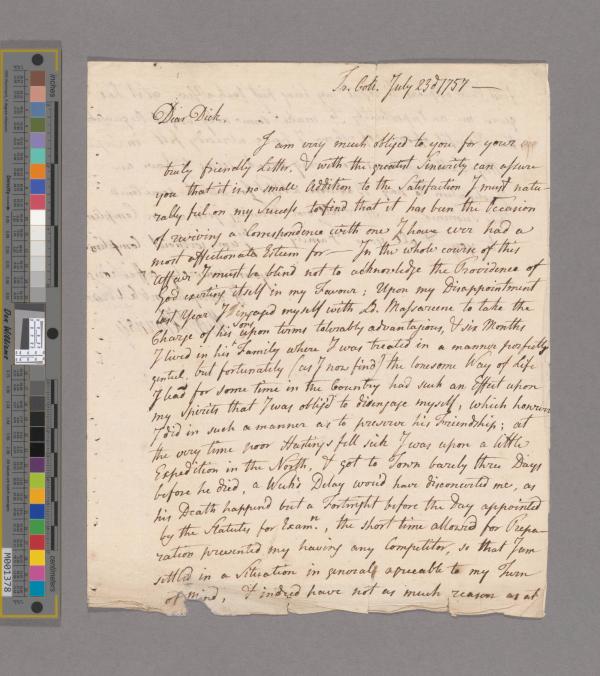 Tr. Coll. July 23d 1757 —
Dear Dick.
I am very much obliged to you for your
truly friendly Letter. & with the greatest Sincerity can assure
you that it is no small Addition to the Satisfaction I must natu-
rally feel on my Success to find that it has been the Occasion
of reviving a Correspondence with one I have ever had a
most affectionate Esteem for — In the whole course of this
Affair I must be blind not to acknowledge the Providence of
God exerting itself in my Favour; Upon my Disappointment
last Year I ingaged myself with Ld. Massareene to take the
Charge of his sons upon terms tolerably advantageous, & six Months
I lived in his Family where I was treated in a manner perfectly
genteel, but fortunately (as I now find) the lonesome Way of Life
I lead for some time in the Country had such an Effect upon
my Spirits that I was oblig'd to disengage myself, which however
I did in such a manner as to preserve his Friendship; at
the very time poor Hastings fell sick I was upon a little
Expedition in the North, & got to Town barely three Days
before he died, a Week's Delay would have disconcerted me, as
his Death happend but a Fortnight before the Day appointed
by the Statutes for Exam.n, the short time allowed for Prepa-
ration prevented my having any Competitor, so that I am
settled in a Situation in general agreeable to my Turn
of mind, & indeed have not as much reason as at
inches
centimeters
Don Williams
M001378